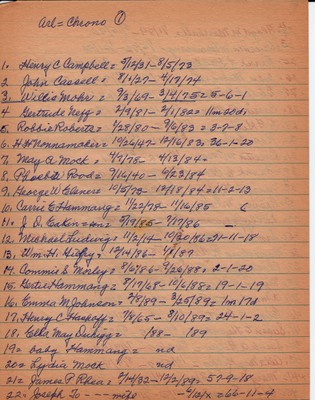 Arl = Chrono ①
1. Henry C Campbell = 2/12/31 - 8/5/73
2. John Cassell = 8/1/27 - 4/17/74
3. Willis Mohr = 9/3/69 - 3/4/75 = 5-6-1
4 Gertrude Neff = 2/9/81 - 2/1/82 = 11m 20d.
5. Robbie Roberts = 1/28/80 - 9/6/83 = 3-7-8
6. H H Wonnamaker = 10/26/47 - 12/16/83 = 36-1-20
7. May E Mock = 4/7/75 - 4/13/84 =
8. Phoebe Rood = 7/16/40 - 6/23/84
9. George W Elsners = 10/5/73 - 12/18/84 = 11-2-13
10. Carrie E Hammang = 1/22/78 - 11/16/85
11. J. D. Eakin = 2/19/85 - 7/17/86 -
12. Michael Ludwig = 11/2/14 - 10/30/86 = 71-11-18
13. Wm. H. = 12/14/86 - 1/8/87
14. Commie E Morley = 8/6/86 - 9/26/88 = 2-1-20
15. Gertie Hammang = 8/17/68 - 10/6/88 = 19-1-19
16. Emma M Johnson = 2/8/89 - 3/25/89 = 1m 17d
17. Henry C = 7/8/65 - 8/10/89 = 24-1-2
18. Etta May = /88 - /89
19 = baby Hammang = nd
20 = Lydia Mock nd
21 = James P Rhea = 2/14/32 - 12/2/89 = 57-9-18
22 = Joseph To - - - = 66-11-4